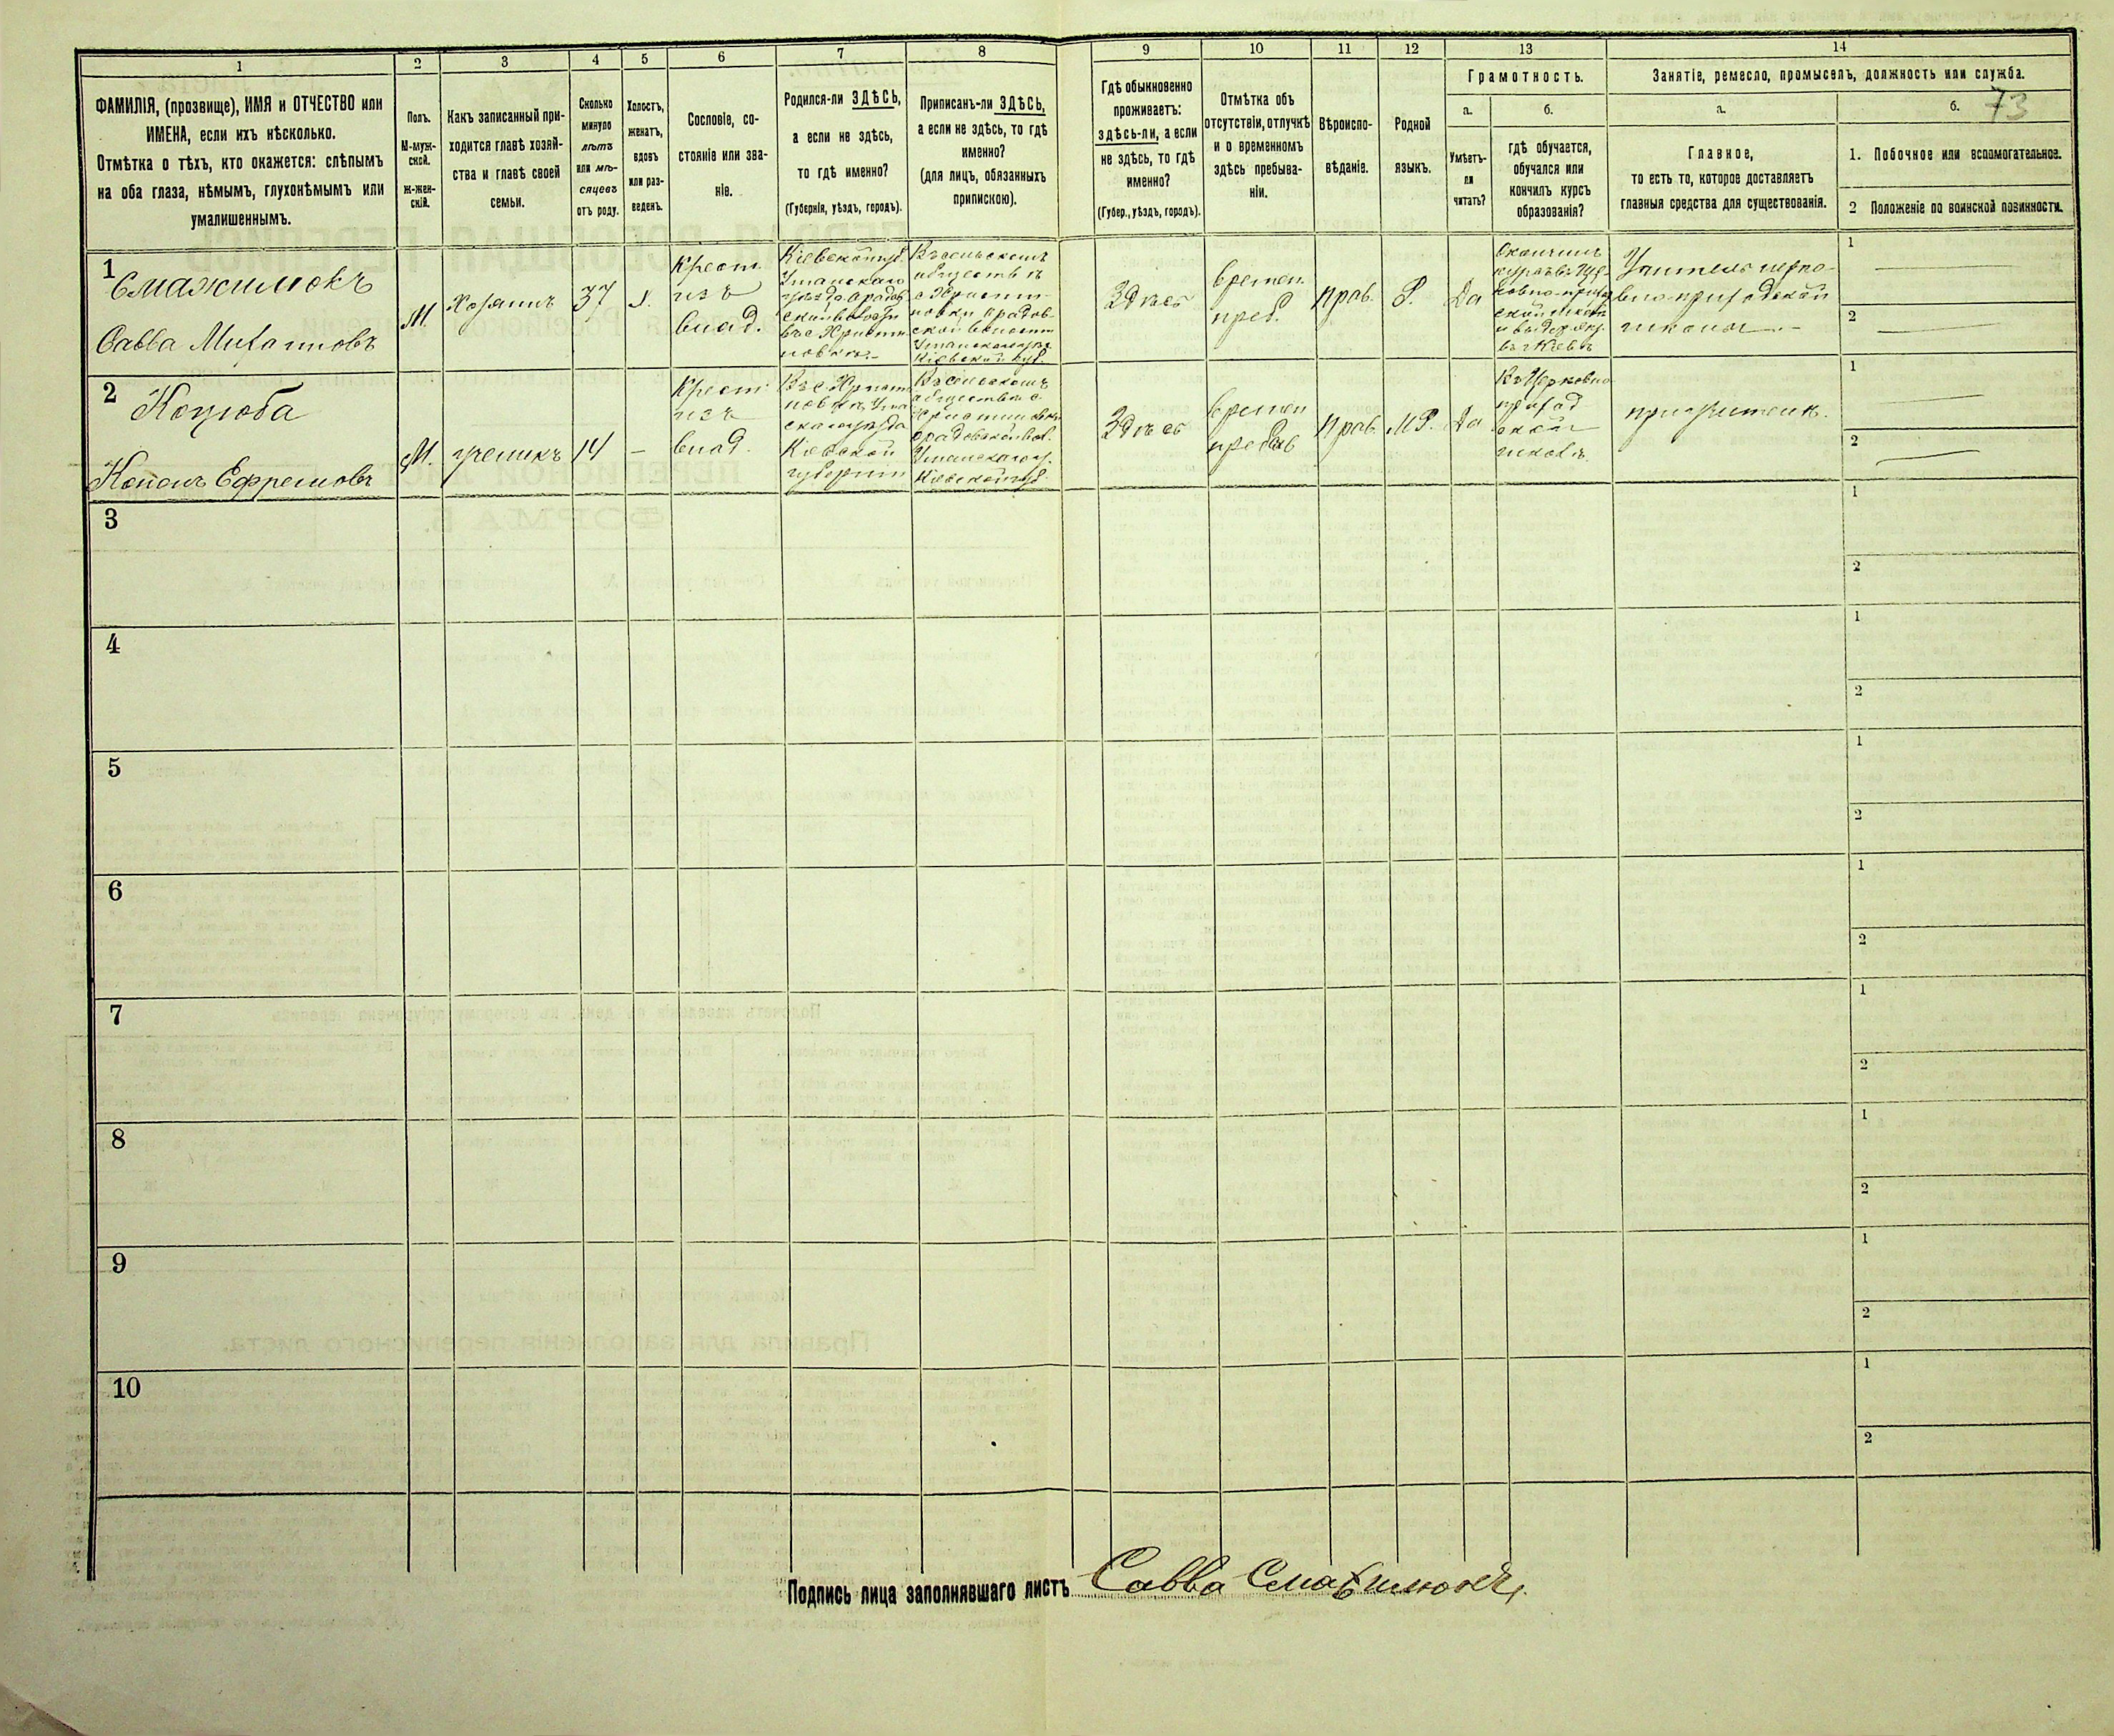 73
1
2
3
4
5
6
7
8
9
10
11
12
13
14
ФАМИЛІЯ, (прозвище), ИМЯ и ОТЧЕСТВО или
ИМЕНА, если ихъ нѣсколько.
Отмѣтка о тѣхъ, кто окажется: слѣпымъ
на оба глаза, нѣмымъ, глухонѣмымъ или
умалишеннымъ.
Полъ.
М-муж-
ской.
ж-жен-
скій.
Какъ записанный при-
ходится главѣ хозяй-
ства и главѣ своей
семьи.
Сколько
минуло
лѣтъ
или мѣ-
сяцевъ
отъ роду.
Холостъ,
женатъ,
вдовъ
или раз-
веденъ.
Сословіе, со-
стояніе или зва-
ніе.
Родился-ли ЗДѢСЬ,
а если не здѣсь,
то гдѣ именно?
(Губернія, уѣздъ, городъ).
Приписанъ-ли ЗДѢСЬ,
а если не здѣсь, то гдѣ
именно?
(для лицъ, обязанныхъ
припискою).
Гдѣ обыкновенно
проживаетъ:
здѣсь-ли, а если
не здѣсь, то гдѣ
именно?
(Губер., уѣздъ, городъ).
Отмѣтка объ
отсутствіи, отлучкѣ
и о временномъ
здѣсь пребыва-
ніи.
Вѣроиспо-
вѣданіе.
Родной
языкъ.
Грамотность.
а.
Умѣетъ-
ли
читать?
б.
гдѣ обучается,
обучался или
кончилъ курсъ
образованія?
Занятіе, ремесло, промыселъ, должность или служба.
а.
Главное,
то есть то, которое доставляетъ
главныя средства для существованія.
б.
1. Побочное или вспомогательное.
2 Положеніе по воинской повинности.
1
Смажилюкъ
Савва Михаиловъ
М.
Хозяинъ
37
Крест.
изъ
влад.
Кіевской губ.
Уманскаго
Въ сельскомъ
обществѣ
Здѣсь
времен.
преб.
Прав.
Р.
Да
Окончилъ
Учитель церко-
вно-приходской
школы.
1
2
2
Коцюба
Кононъ Ефремовъ
М.
ученикъ
14
–
Крест
изъ
влад.
Въ с. Христи
новкѣ, Ума
Кіевской
губерніи
Въ сельскомъ
обществѣ с.
Уманскаго у.
Кіевской губ.
Здѣсь
времен
преб
Прав.
М Р.
Да
Въ Церковно
приход
ской
школѣ.
при учителѣ.
1
2
3
1
2
4
1
2
5
1
2
6
1
2
7
1
2
8
1
2
9
1
2
10
1
2
Подпись лица заполнявшаго листъ Савва Смажилюкъ